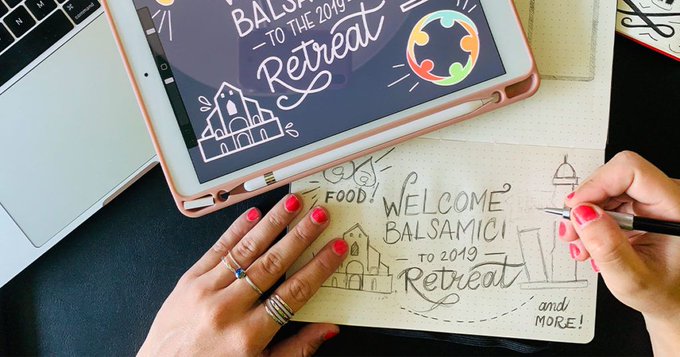 BALSAMI
TO THE 2019
Retreat
FOOD!
WELCOME
BALSAMICI
TO 2019
Retreat
and
MORE!